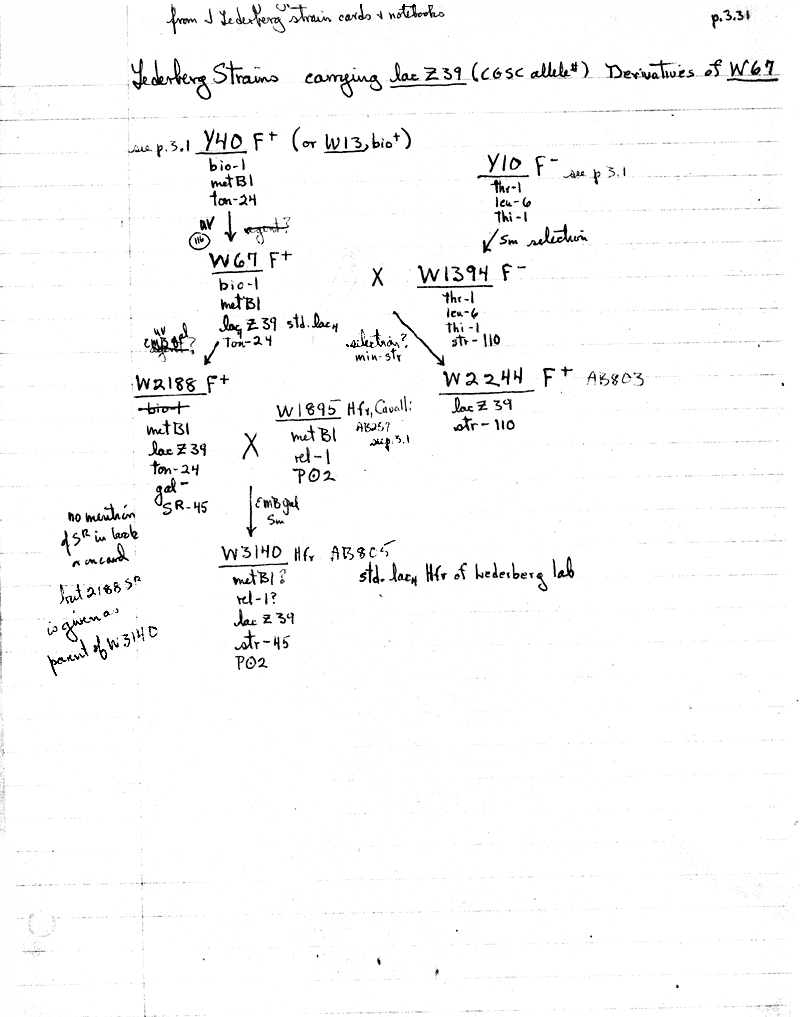 from J Lederberg strain cards & notebooks
p.3.31
Lederberg Strains carrying lac Z39 (CGSC allele#) Derivatives of W67
see p.3.1 Y40 F+ (or W13, bio+)
bio-1
metB1
ton-24
Y10 F- see p 3.1
thr-1
leu-6
thi-1
UV agent?
116
Sm selection
W67 F+
bio-1
metB1
lac4 Z39 std. lac4
Ton-24
X
W1394 F-
thr-1
leu-6
thi-1
str-110
UV
EMB gal
agent?
selection?
min-str
W2188 F+
bio-1
metB1
lac Z39
ton-24
gal-
SR-45
X
W1895 Hfr, Cavalli
metB1
rel-1
PO2
AB257
see p.3.1
W2244 F+ AB803
lac Z39
str-110
EMB gal
Sm
no mention
of SR in book
or on card
but 2188 SR
is given as
parent of W3140
W3140 Hfr AB805
metB1?
rel-1?
lac Z39
str-45
PO2
std. lac4 Hfr of Lederberg lab